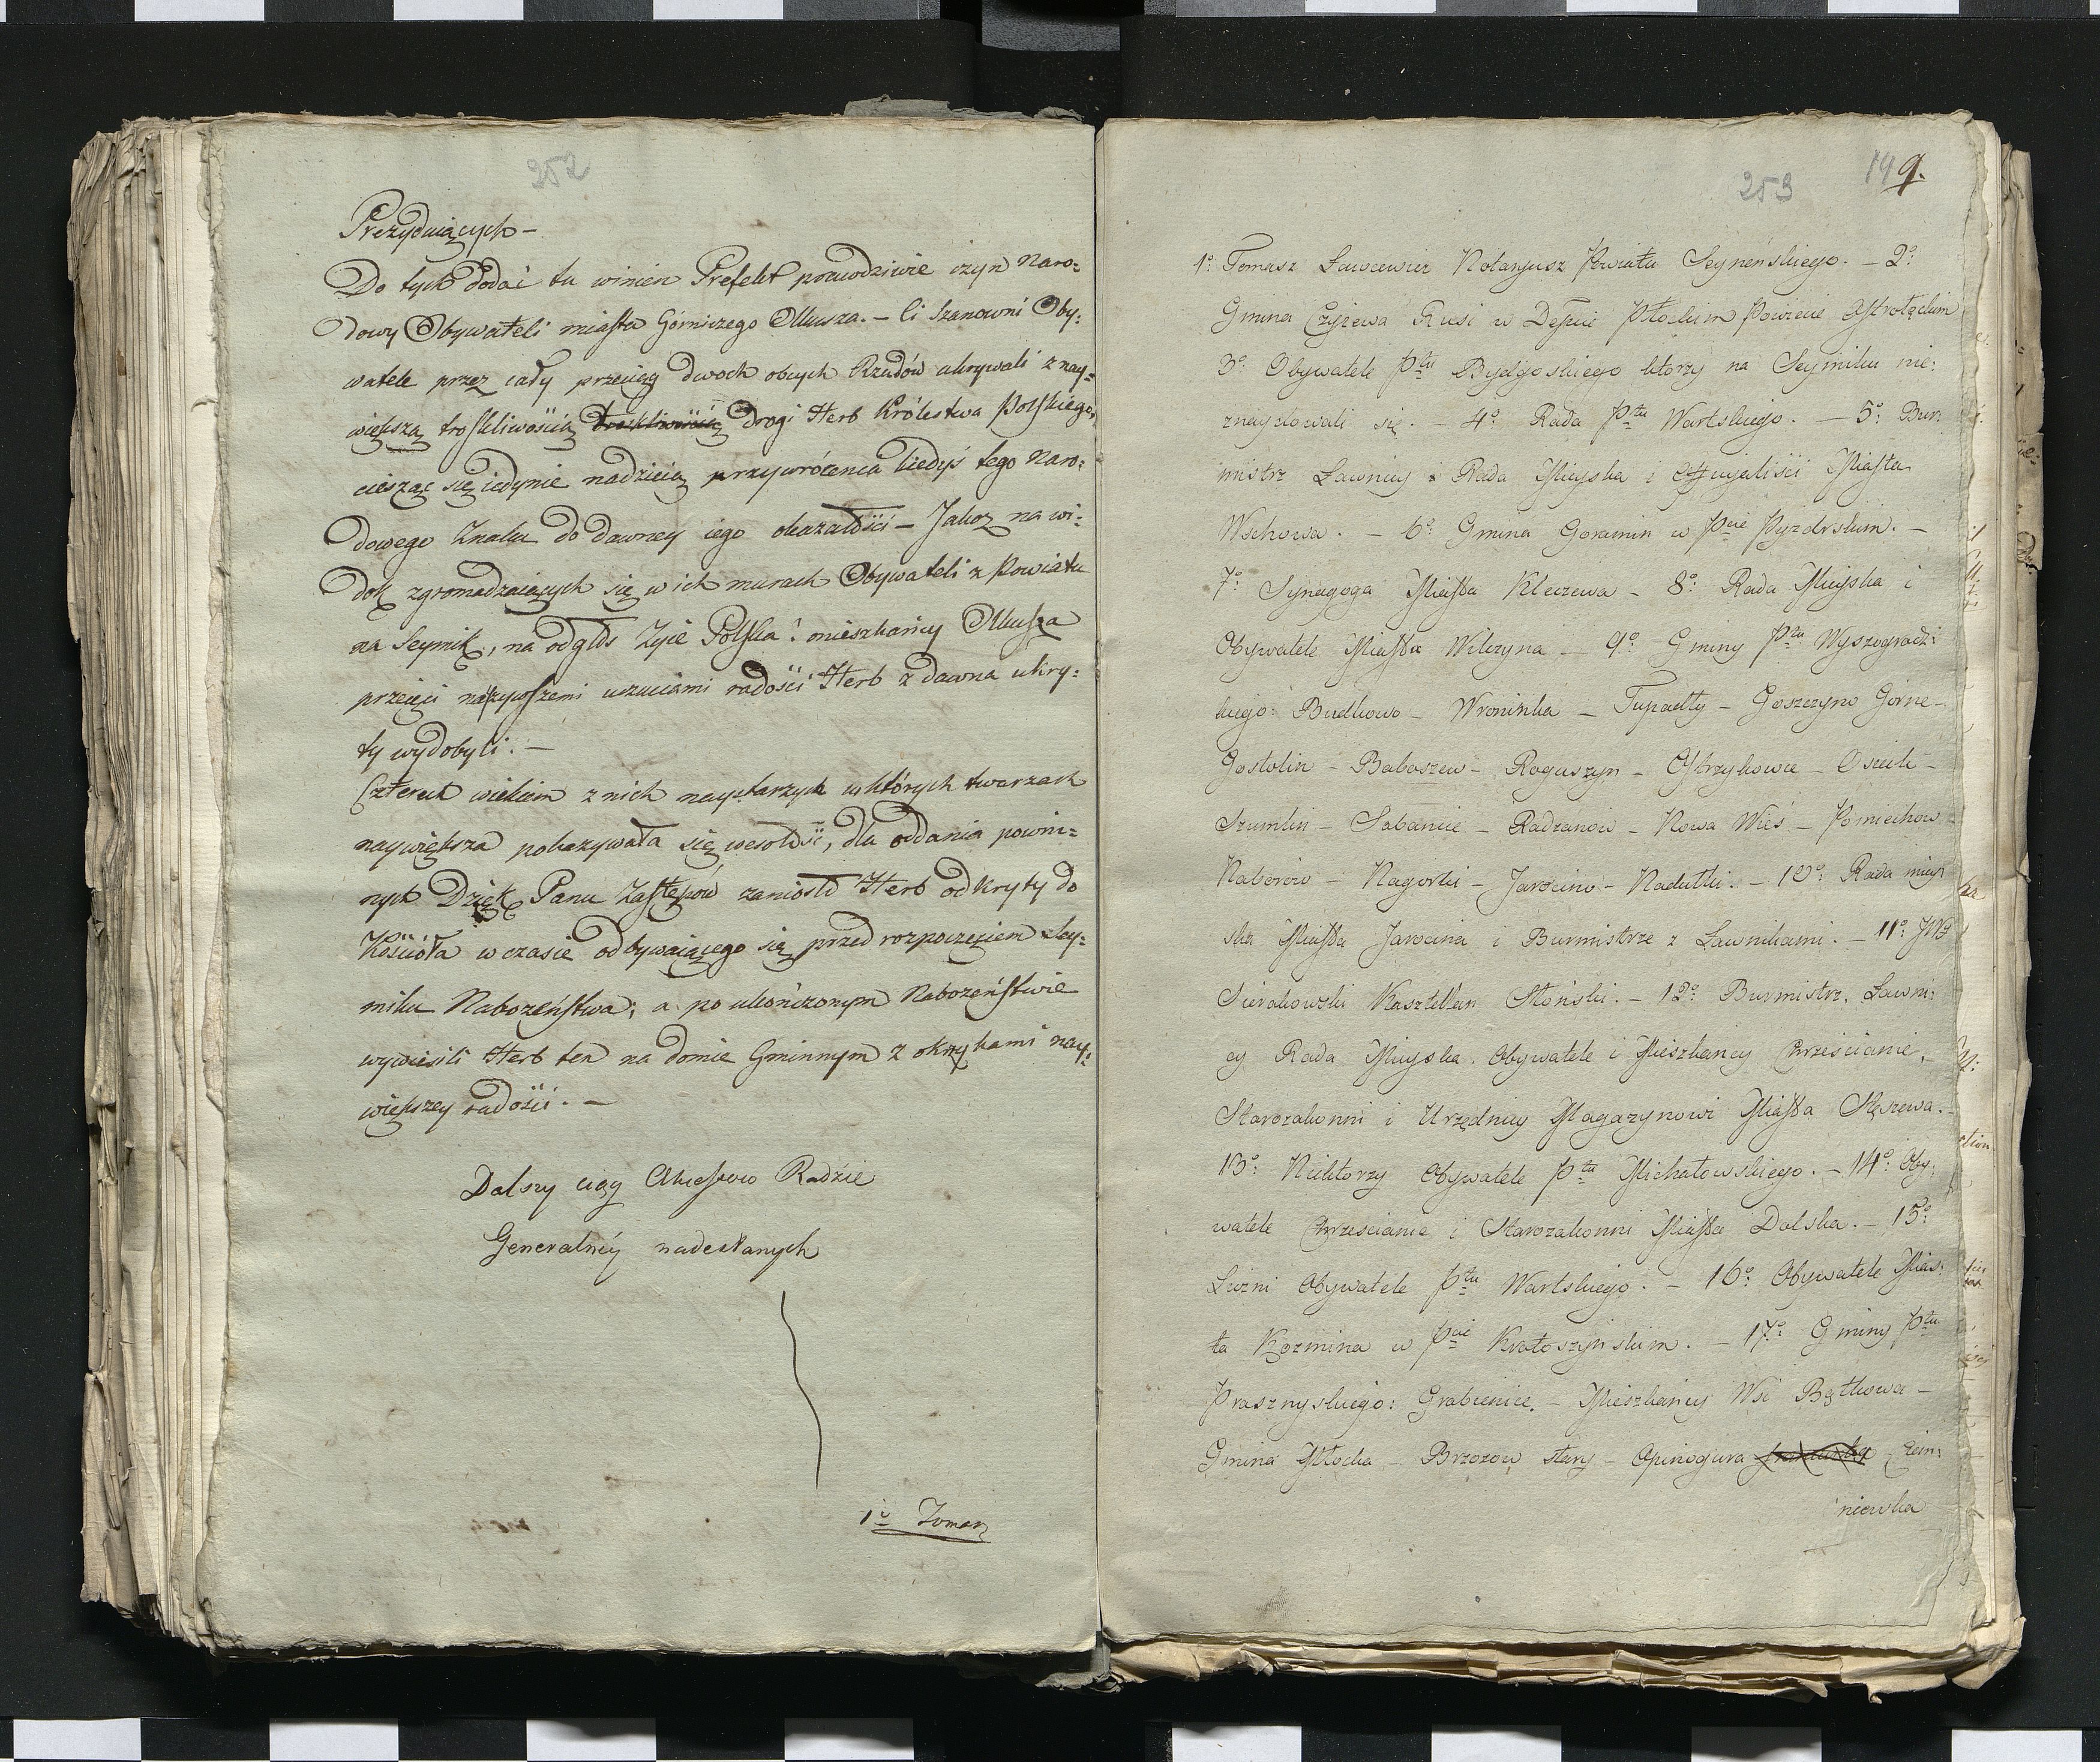 252
Prezyduiących –
Do tych dodać tu winien Prefekt prawdziwie czyn Naro:
dowy Obywateli miasta Górniczego Olkusza. – Ci Szanowni Oby:
watele przez cały przeciąg dwoch obcych Rządów ukrywali z nay:
większą troskliwością troskliwością drogi Herb Królestwa Polskiego,
ciesząc się iedynie nadzieią przywrócenia kiedyś tego Naro:
dowego Znaku do dawney iego okazałości – Jakoż na wi:
dok zgromadzaiących się w ich murach Obywateli z Powiatu
na Seymik, na odgłos Życie Polska! mieszkańcy Olkusza
przeięci nayżywszemi uczuciami radości Herb z dawna ukry:
ty wydobyli. –
Czterech wiekiem z nich naystarszych w których twarzach
naywiększa pokazywała się wesołość, dla oddania powin:
nych Dzięk Panu Zastępów zaniosło Herb odkryty do
Kościoła w czasie odbywaiącego się przed rozpoczęciem Sey:
miku Nabożeństwa; a po ukończonym Nabożeństwie
wywiesili Herb ten na domie Gminnym z okrzykami nay:
większey radości. –
Dalszy ciąg Akcessow Radzie
Generalnéy nadesłanych
1º Tomasz
253
149.
1º: Tomasz Ławcewicz Notaryusz Powiatu Seyneńskiego. – 2º:
Gmina Czyżewa Rusi w Depcie Płockim Powiecie Ostrołęckim
3º Obywatele Ptu Bydgoskiego ktorzy na Seymiku nie:
znaydowali się. – 4º Rada Ptu Wartskiego. – 5º: Bur:
mistrz Ławnicy i Rada Mieyska i Officyaliści Miasta
Wschowa. – 6º: Gmina Goranin w Pcie Pyzdrskim. –
7º: Synagoga Miasta Kleczewa – 8º: Rada Mieyska i
Obywatele Miasta Wilczyna – 9º Gminy Ptu Wyszogrodz:
kiego: Budkowo – Wroninka – Tupadły – Goszczyno Górne –
Gostolin – Baboszew – Roguszyn – Ostrzykowce – Osiek –
Szumlin – Sobanice – Radzanow – Nowa Wieś – Pomiechow
Naborow – Nagorki – Jarocino – Nadułki. – 10º: Rada miey:
ska Miasta Jarocina i Burmistrze z Ławnikami. – 11º: JWy
Sierakowski Kasztellan Słoński. – 12º: Burmistrz, Ławni:
cy Rada Mieyska. Obywatele i Mieszkancy Chrześcianie,
Starozakonni i Urzędnicy Magazynowi Miasta Stęszewa. –
13º: Niektorzy Obywatele Ptu Michałowskiego. – 14º: Oby:
watele Chrześcianie i Starozakonni Miasta Dolska. – 15º:
Luźni Obywatele Ptu Wartskiego. – 16º: Obywatele Mias:
ta Kozmina w Pcie Krotoszyńskim. – 17º: Gminy Ptu
Prasznyskiego: Grabienice. – Mieszkańcy Wsi Bątkowa –
Gmina Młocka – Brzozow stary – Opinogura Czer:
niewka